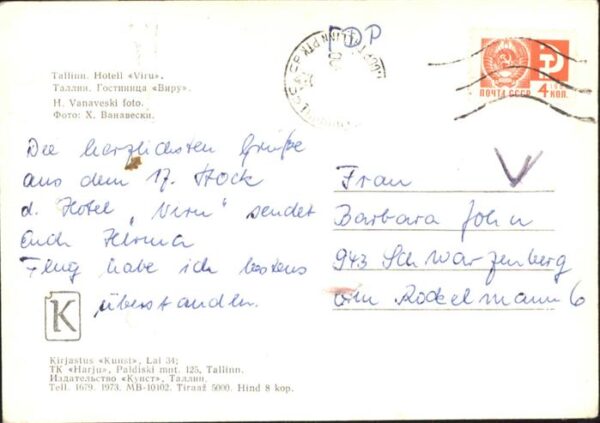 ГДР
Tallinn. Hotell «Viru».
Таллин. Гостиница «Виру».
H. Vanaveski foto.
Фото: Х. Ванавески.
ПОЧТА СССР 4 КОП.
Die herzlichsten Grüße
aus dem 17. Stock
d. Hotel „Viru" sendet
Euch
Flug habe ich bestens
überstanden.
Frau
Barbara John
943 Schwarzenberg
6
K
Kirjastus «Kunst», Lai 34;
TK «Harju», Paldiski mnt. 125, Tallinn.
Издательство «Кунст», Таллин.
Tell. 1679. 1973. MB-10102. Tiraaž 5000. Hind 8 kop.